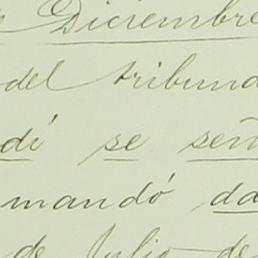 Diciembre
del tribun
di se señ
mandó da
de Julio de